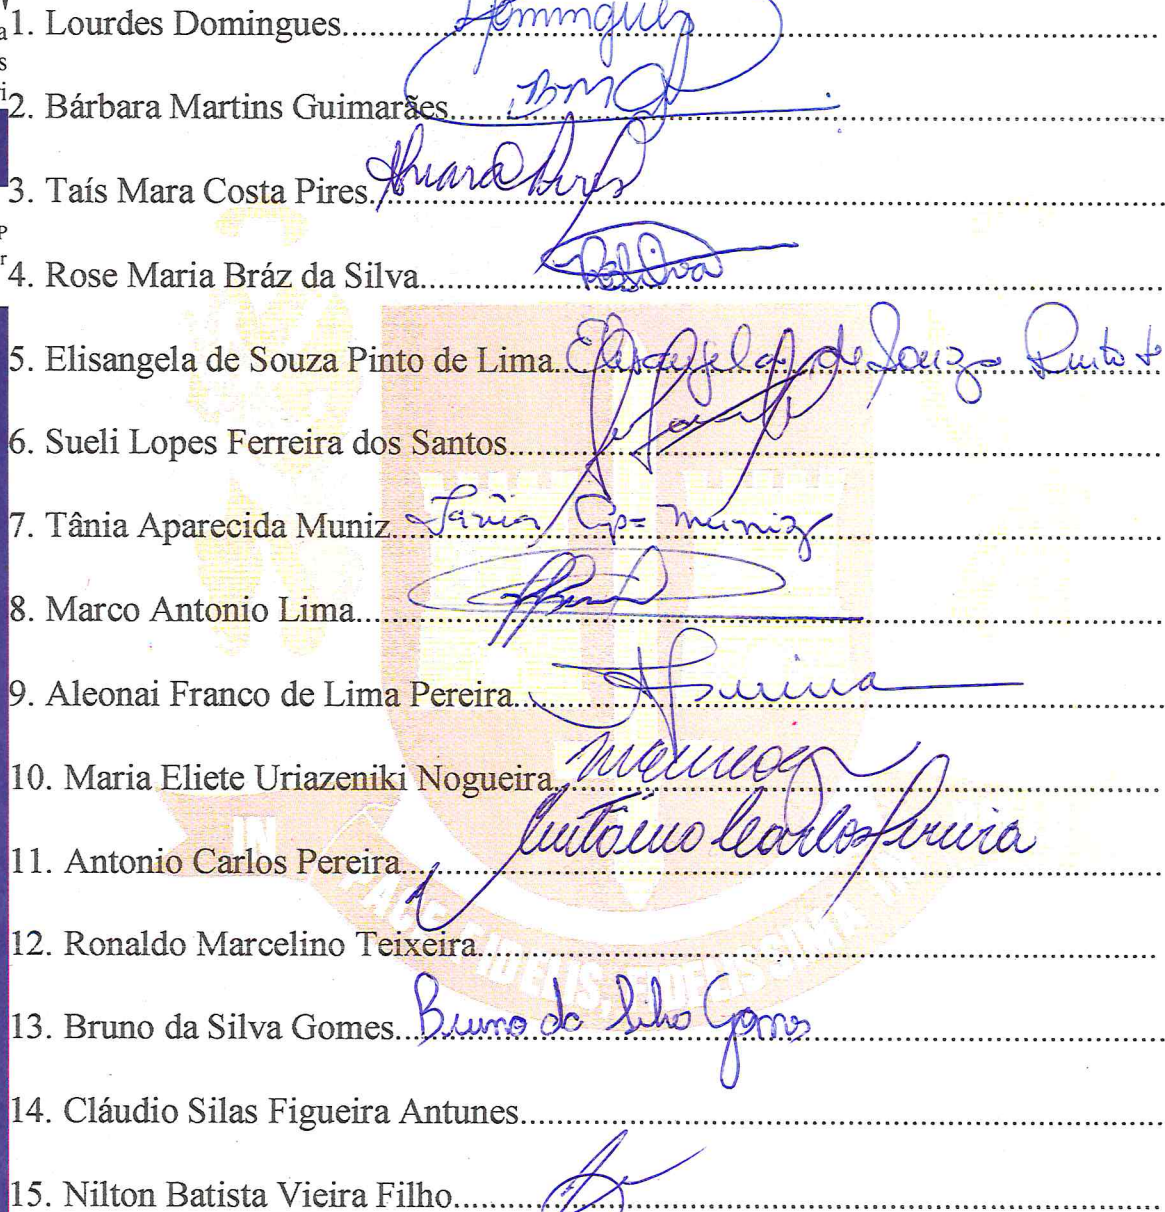 1. Lourdes Domingues.......... Domingues
2. Bárbara Martins Guimarães.......... BMG
3. Taís Mara Costa Pires.......... Pires
4. Rose Maria Bráz da Silva.......... RoSilva
5. Elisangela de Souza Pinto de Lima.. Elisangela de Souza Pinto
6. Sueli Lopes Ferreira dos Santos..........
7. Tânia Aparecida Muniz.......... Tânia Ap= Muniz
8. Marco Antonio Lima..........
9. Aleonai Franco de Lima Pereira..........
10. Maria Eliete Uriazeniki Nogueira..........
11. Antonio Carlos Pereira.......... Antonio Carlos Pereira
12. Ronaldo Marcelino Teixeira..........
13. Bruno da Silva Gomes.......... Bruno da Silva Gomes
14. Cláudio Silas Figueira Antunes..........
15. Nilton Batista Vieira Filho..........
IN PACE FIDELIS, FIDELISSIMA IN